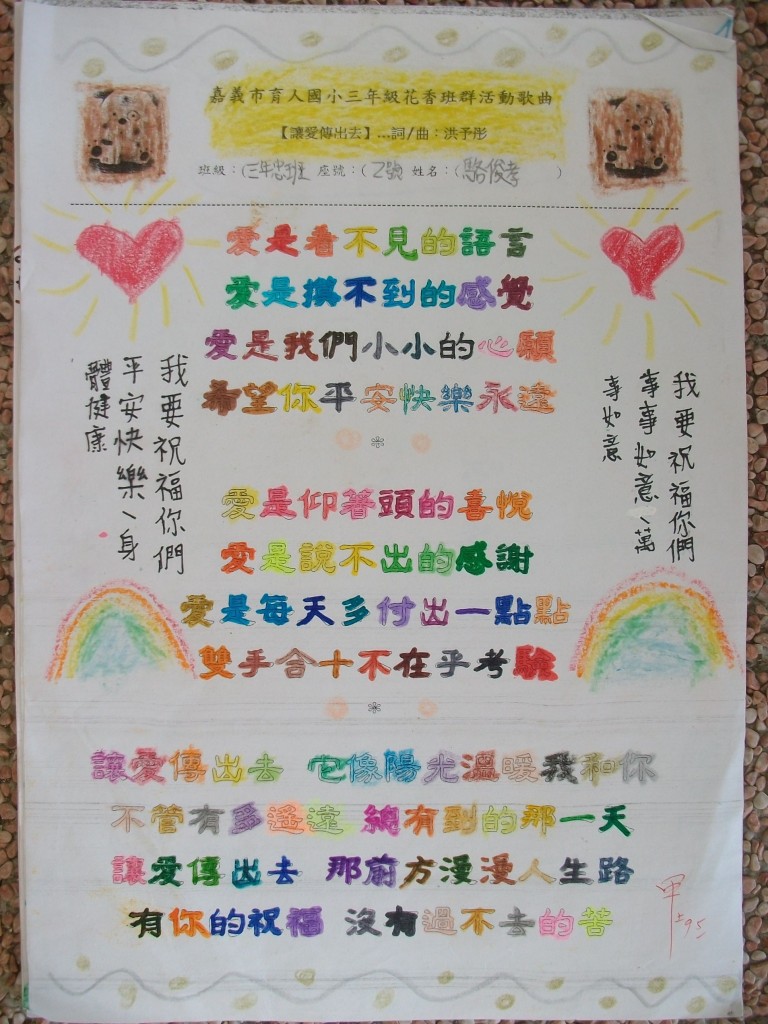 嘉義市育人國小三年級花香班群活動歌曲
【讓愛傳出去】...詞/曲：洪予彤
班級：(三年忠班 座號：(2號 姓名：(駱俊孝 )
愛是看不見的語言
愛是摸不到的感覺
愛是我們小小的心願
希望你平安快樂永遠
*
愛是仰著頭的喜悅
愛是說不出的感謝
愛是每天多付出一點點
雙手合十不在乎考驗
*
讓愛傳出去 它像陽光溫暖我和你
不管有多遙遠 總有到的那一天
讓愛傳出去 那前方漫漫人生路
有你的祝福 沒有過不去的苦
我要祝福你們
平安快樂、身
體健康
我要祝福你們
事事如意、萬
事如意
甲上95